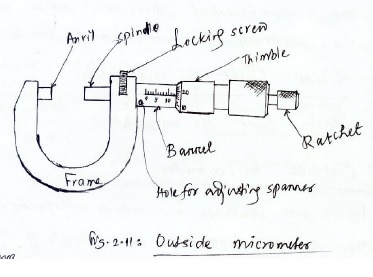 Anvil
spindle
Locking screw
Thimble
0 4 8 10
20
10
Barrel
Ratchet
Frame
Hole for adjusting spanner
fig. 2.11: Outside micrometer